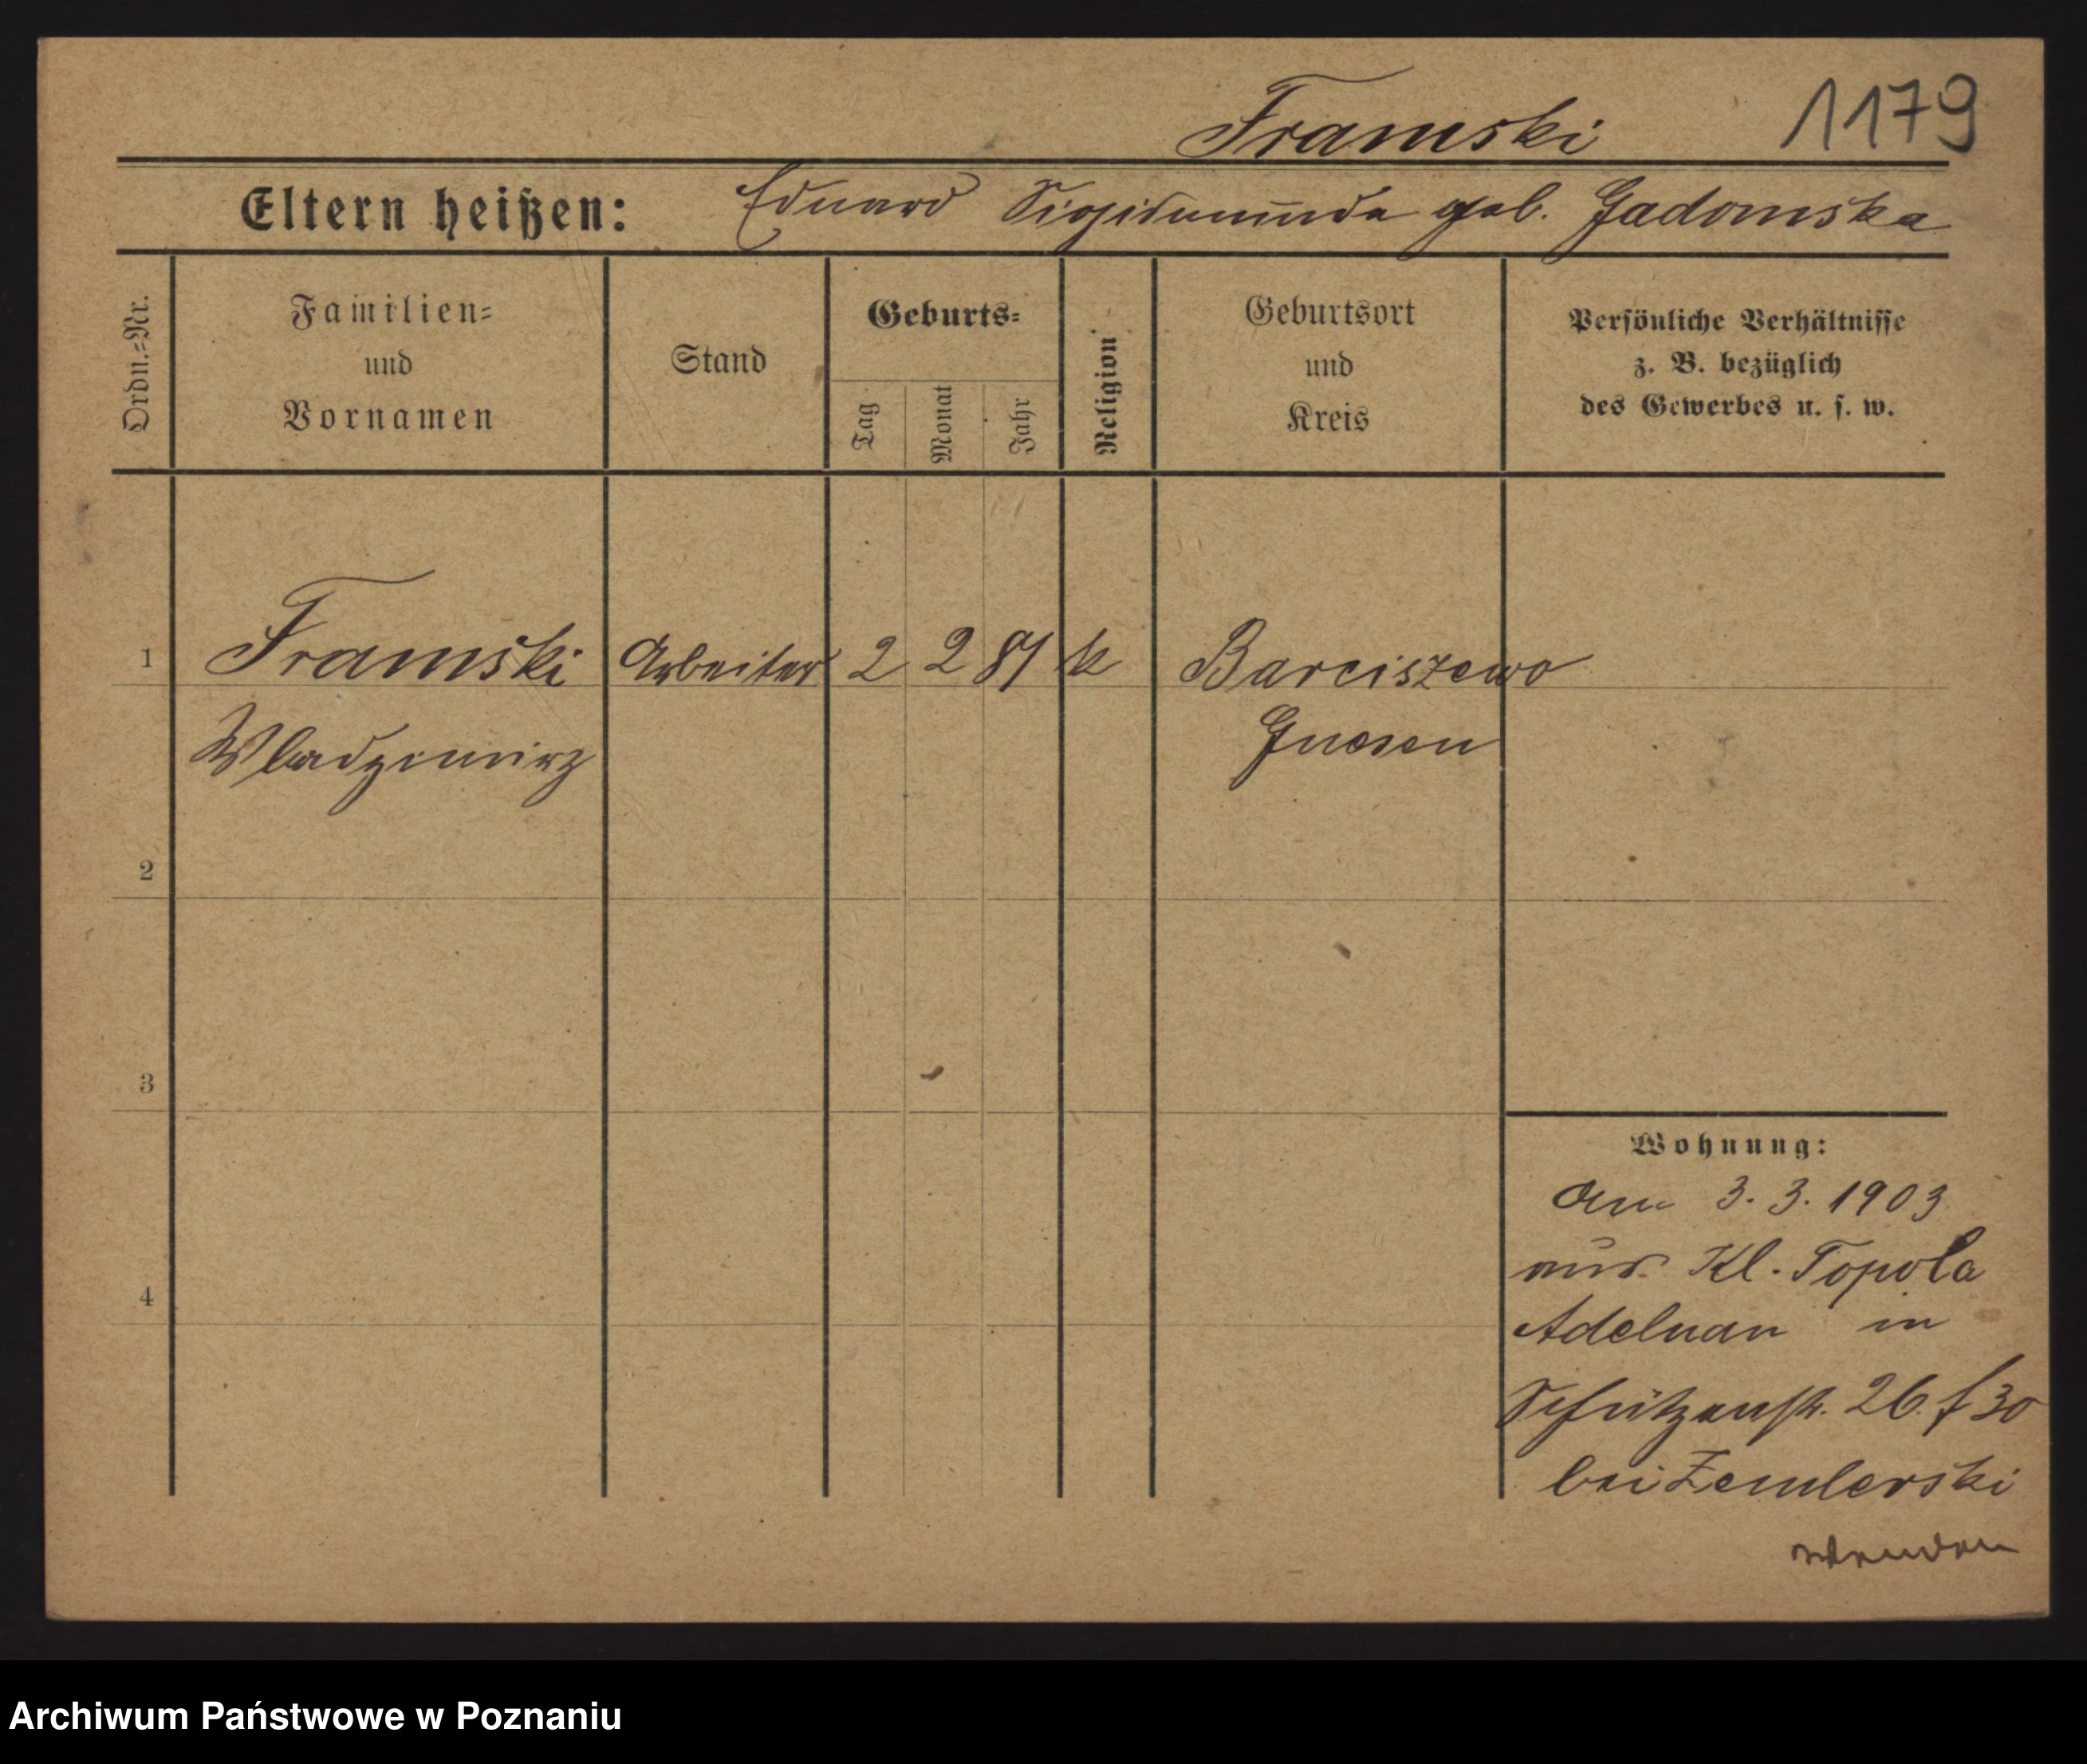 Framski 1179
Eltern heißen: Eduard Sigismunda geb. Gadomska
Ordn.=Nr.
Familien=
und
Vornamen
Stand
Geburts=
Tag
Monat
Jahr
Religion
Geburtsort
und
Kreis
Persönliche Verhältnisse
z. B. bezüglich
des Gewerbes u. s. w.
1 Framski Arbeiter 2 2 81 k Barciszewo
Wladzimirz Gnesen
2
3
4
Wohnung:
Am 3. 3. 1903
aus Kl. Topola
Adelnau in
Schützenstr. 26. f 30
bei Zemlerski
wenden
Archiwum Państwowe w Poznaniu